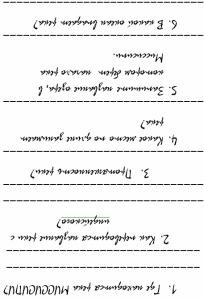 1. Где находится река МИССИСИПИ?
2. Как переводится название реки с
индейского?
3. Протяженность реки?
4. Какое место по длине занимает
река?
5. Запишите название озера, в
котором берёт начало река
Миссисипи.
6. В какой океан впадает река?